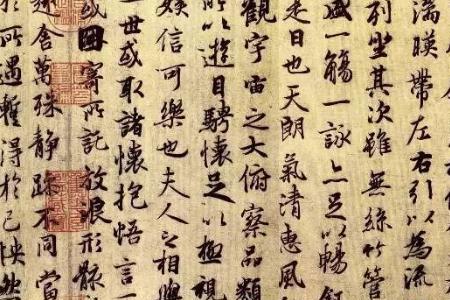 湍暎帶左右引以為流
列坐其次雖無絲竹管
盛一觴一詠亦足以暢叙
是日也天朗氣清惠風
觀宇宙之大俯察品類
所以遊目騁懷足以極視
娛信可樂也夫人之相與
世或取諸懷抱悟言一
或因寄所託放浪形骸
舍萬殊静躁不同當
於所遇蹔得於己怏然